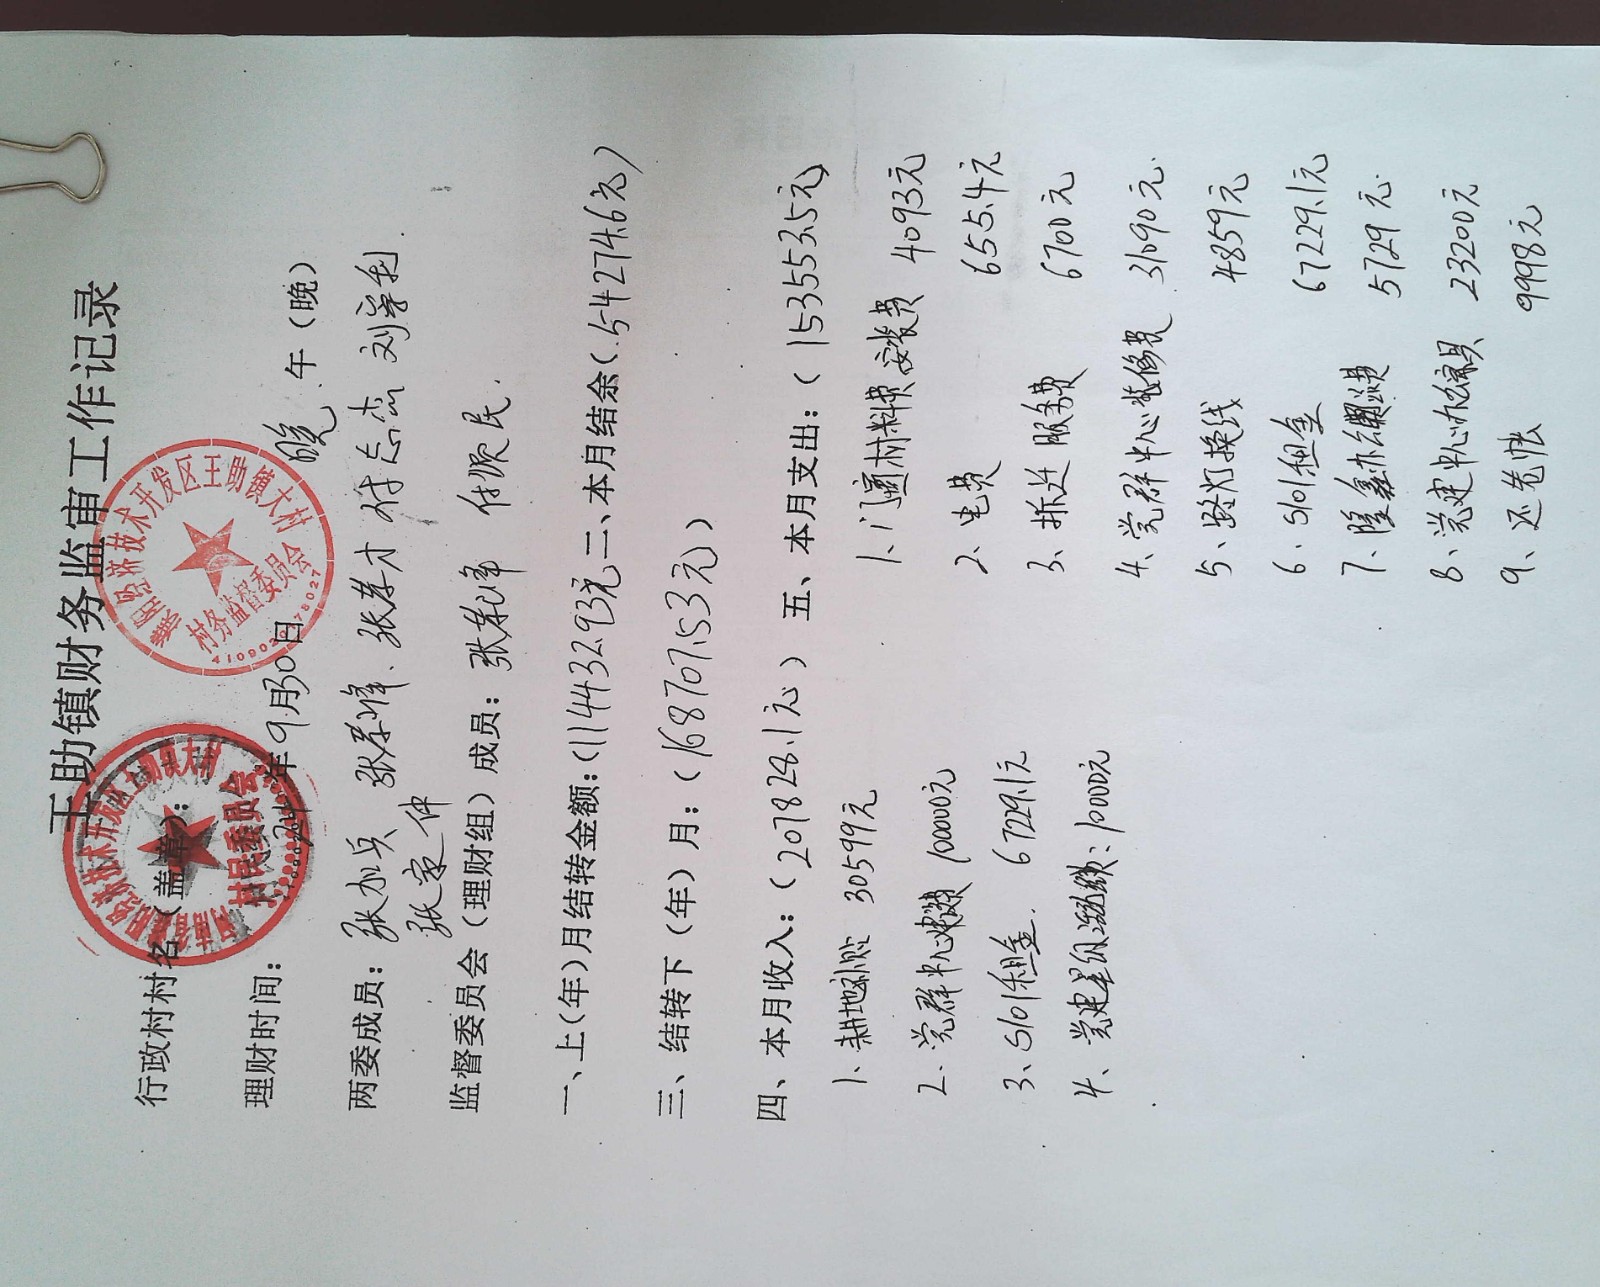 王助镇财务监审工作记录
行政村村名（盖章）：
河南省濮阳经济技术开发区王助镇大村
村民委员会
濮阳经济技术开发区王助镇大村
村务监督委员会
理财时间：2024年9月30日 晚 午（晚）
两委成员：张加兵 张群峰、张孝才 付志杰 刘翠利
张家仲
监督委员会（理财组）成员：张东峰 付顺民.
一、上(年)月结转金额：(114432.93元 二、本月结余(54274.6元)
三、结转下（年）月：(168707.53元)
四、本月收入：(207828.1元) 五、本月支出：(153553.5元)
1、耕地补贴 30599元
2、党群中心 100000元
3、5101租金. 67229.1元
4、党建 : 10000元
1、门窗材料费安装费 4093元
2、电费 655.4元
3、拆迁服务费 6700元
4、党群中心装修费 31090元
5、路灯换线 4859元
6、5101租金 67229.1元
7、隆鑫 费 5729元
8、党建中心办公家具 23200元
9、还旧账 9998元